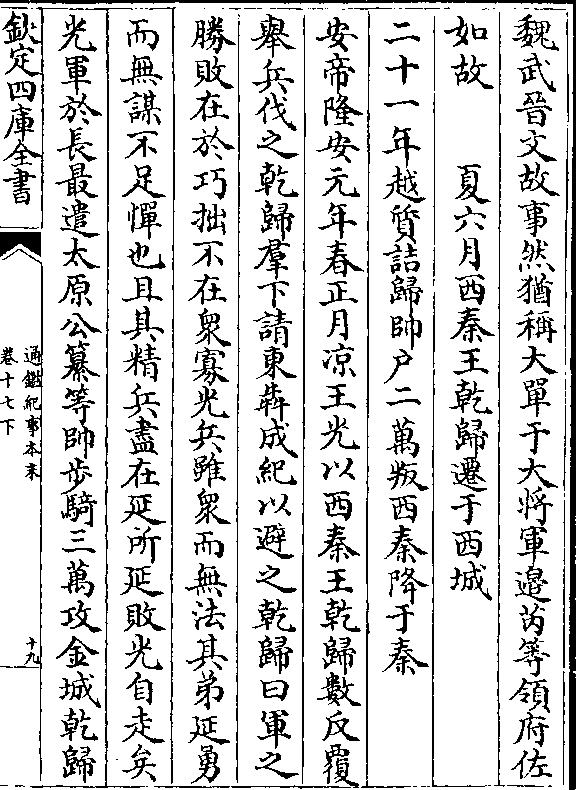 魏武晉文故事然猶稱大單于大将軍邉芮等領府佐
如故　　夏六月西秦王乾歸遷于西城
二十一年越質詰歸帥户二萬叛西秦降于秦
安帝隆安元年春正月凉王光以西秦王乾歸數反覆
舉兵伐之乾歸羣下請東奔成紀以避之乾歸曰軍之
勝敗在於巧拙不在衆寡光兵雖衆而無法其弟延勇
而無謀不足憚也且其精兵盡在延所延敗光自走矣
光軍於長最遣太原公纂等帥步騎三萬攻金城乾歸
欽定四庫全書
通鑑紀事本末
卷十七下
十九